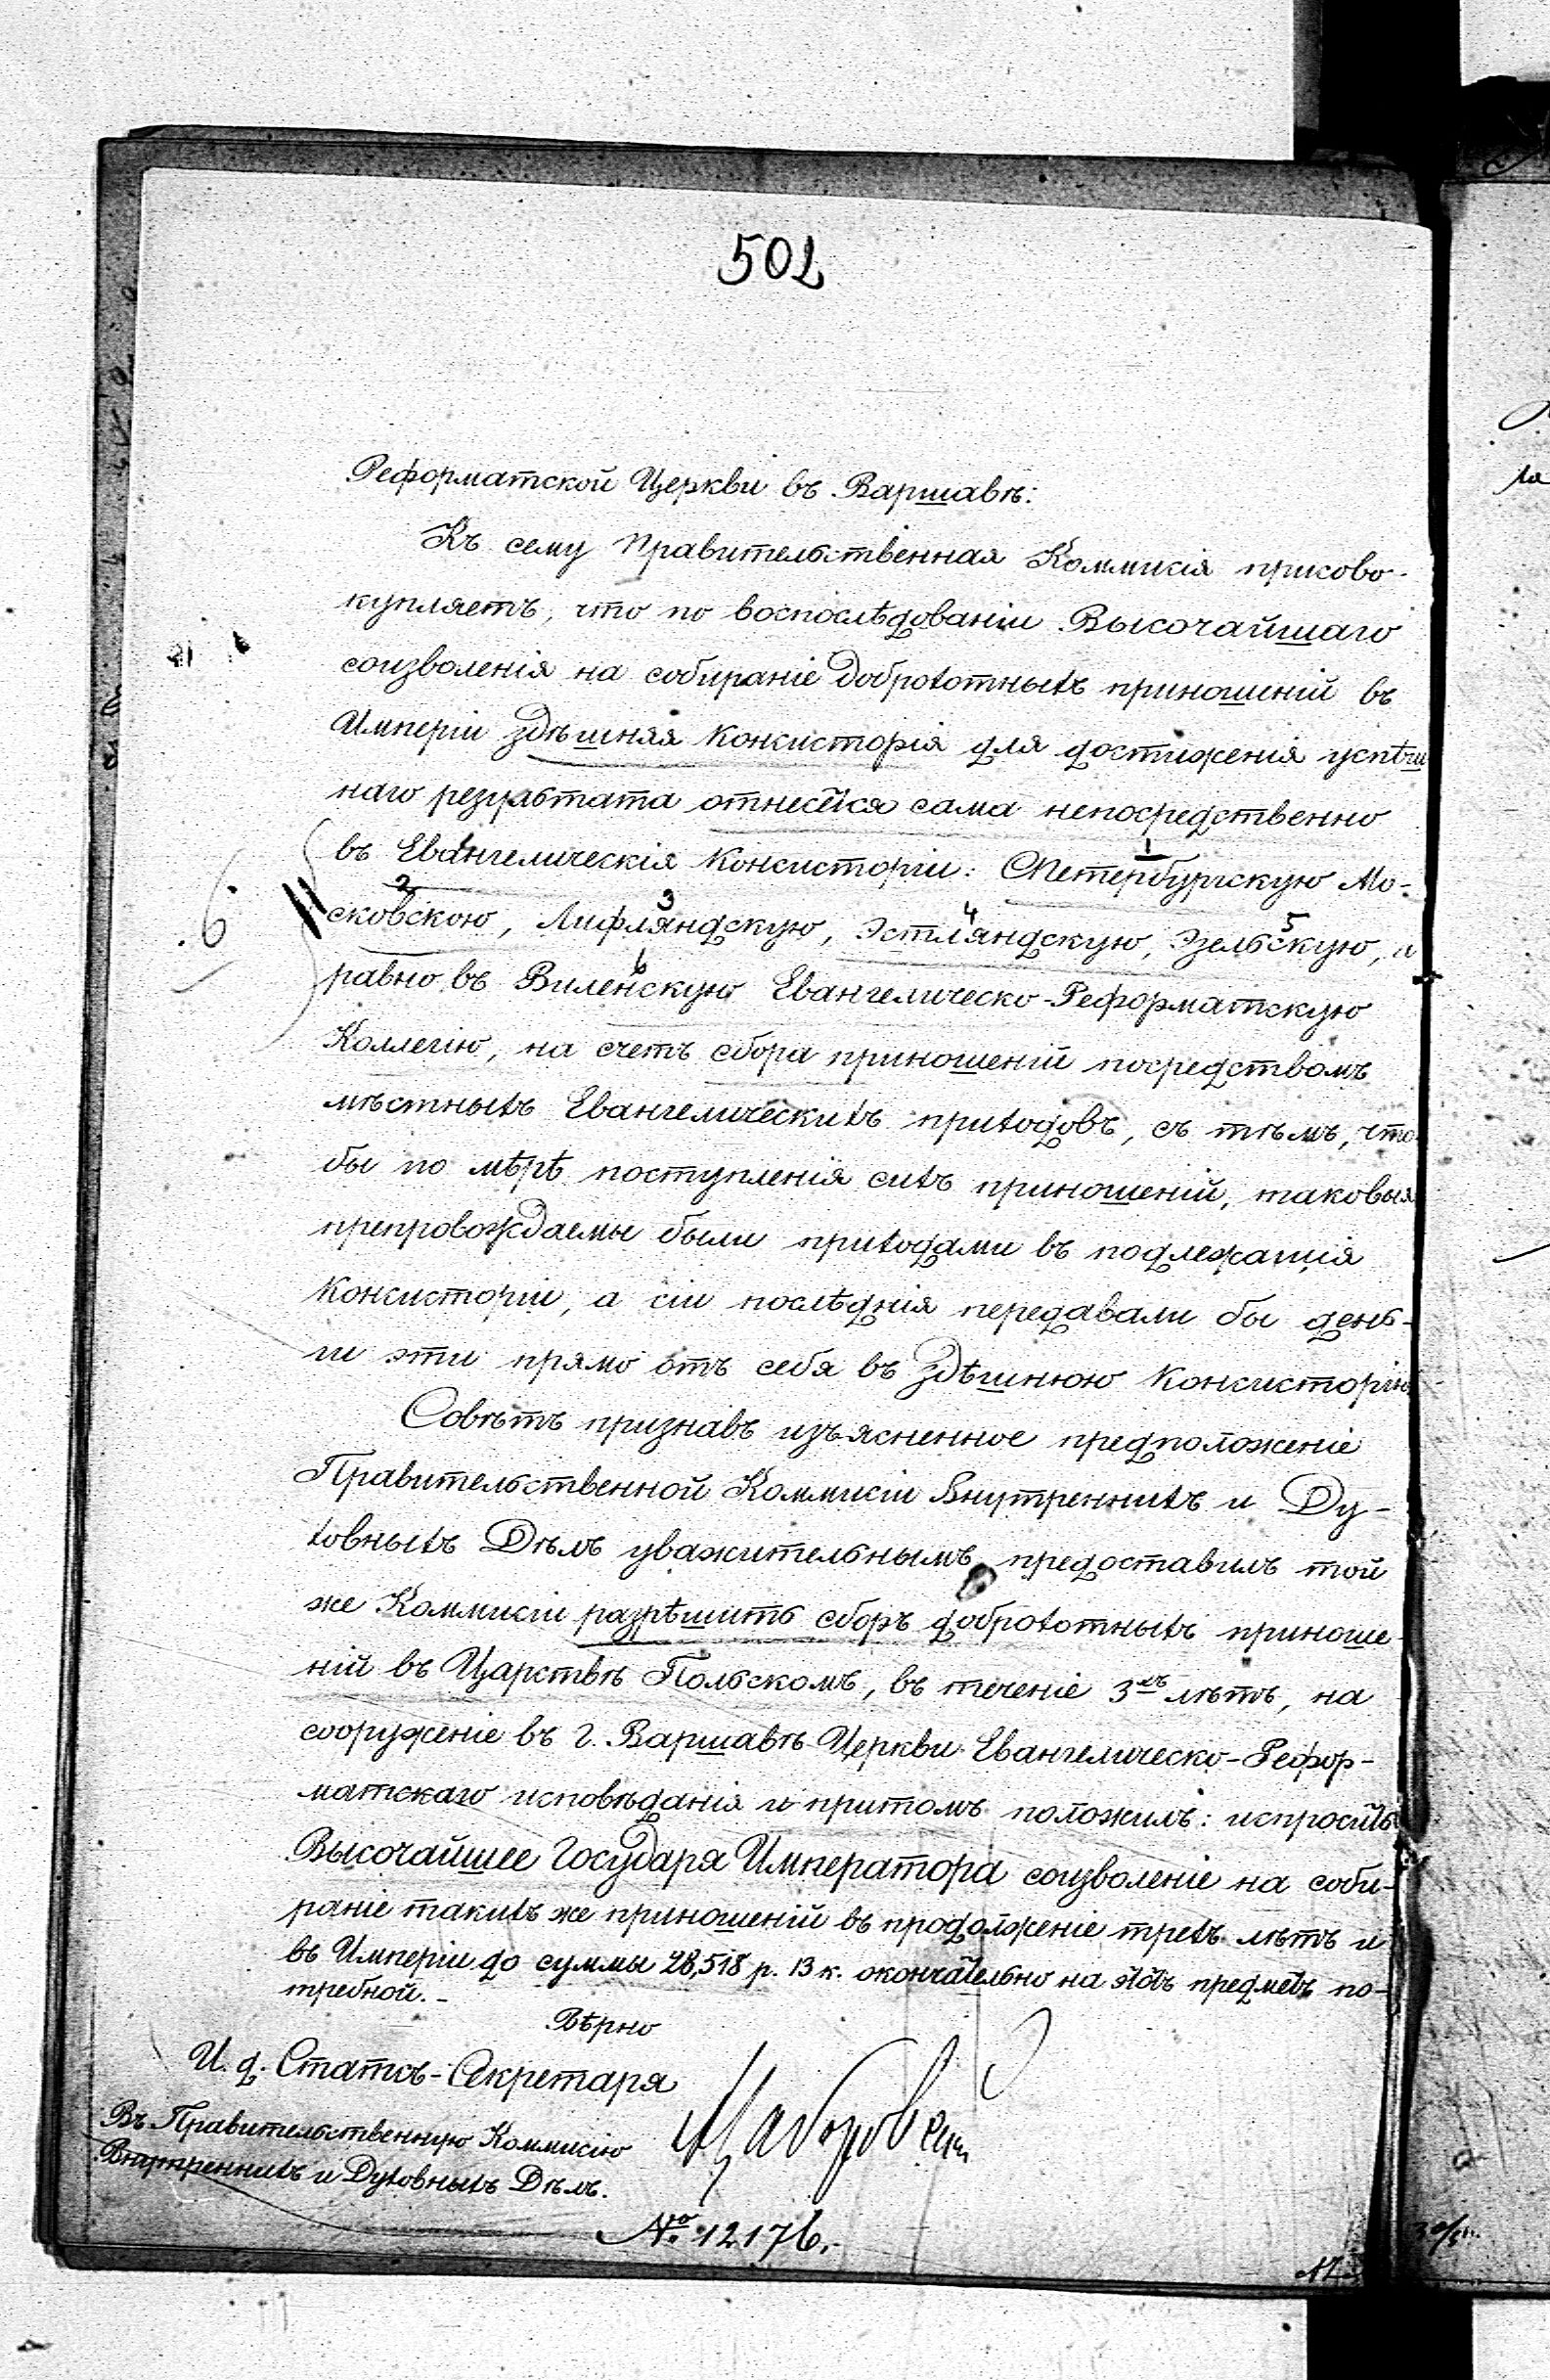 502
Реформатской Церкви въ Варшавѣ:
Къ сему Правительственная Коммисія присово-
купляетъ, что по воспослѣдованіи Высочайшаго
соизволенія на собираніе доброхотныхъ приношеній въ
Имперіи здѣшняя Консисторія для достиженія успѣш
наго результата отнесется сама непосредственно
въ Евангелическія Консисторіи: СПетербургскую Мо-
1
2 3 4 5
сковскою, Лифляндскую, Эстляндскую, Эзельскую, и
6
6
равно въ Виленскую Евангелическо-Реформатскую
Коллегію, на счетъ сбора приношеній посредствомъ
мѣстныхъ Евангелическихъ приходовъ, съ тѣмъ, что
бы по мѣрѣ поступленія сихъ приношеній, таковыя
препровождаемы были приходами въ подлежащія
Консисторіи, а сіи послѣднія передавали бы день-
ги эти прямо отъ себя въ здѣшнюю Консисторію
Совѣтъ признавъ изъясненное предположеніе
Правительственной Коммисіи Внутреннихъ и Ду-
ховныхъ Дѣлъ уважительнымъ предоставилъ той
же Коммисіи разрѣшить сборъ доброхотныхъ приноше-
ній въ Царствѣ Польскомъ, въ теченіе 3хъ лѣтъ, на
сооруженіе въ г. Варшавѣ Церкви Евангелическо-Рефор-
матскаго исповѣданія и притомъ положилъ: испросить
Высочайшее Государя Императора соизволеніе на соби-
раніе такихъ же приношеній въ продолженіе трехъ лѣтъ и
въ Имперіи до суммы 28,518 р. 13 к. окончательно на этотъ предметъ по-
требной.-
Вѣрно
И. д. Статсъ-Секретаря
Въ Правительственную Коммисію
Внутреннихъ и Духовныхъ Дѣлъ.
№ 12176.